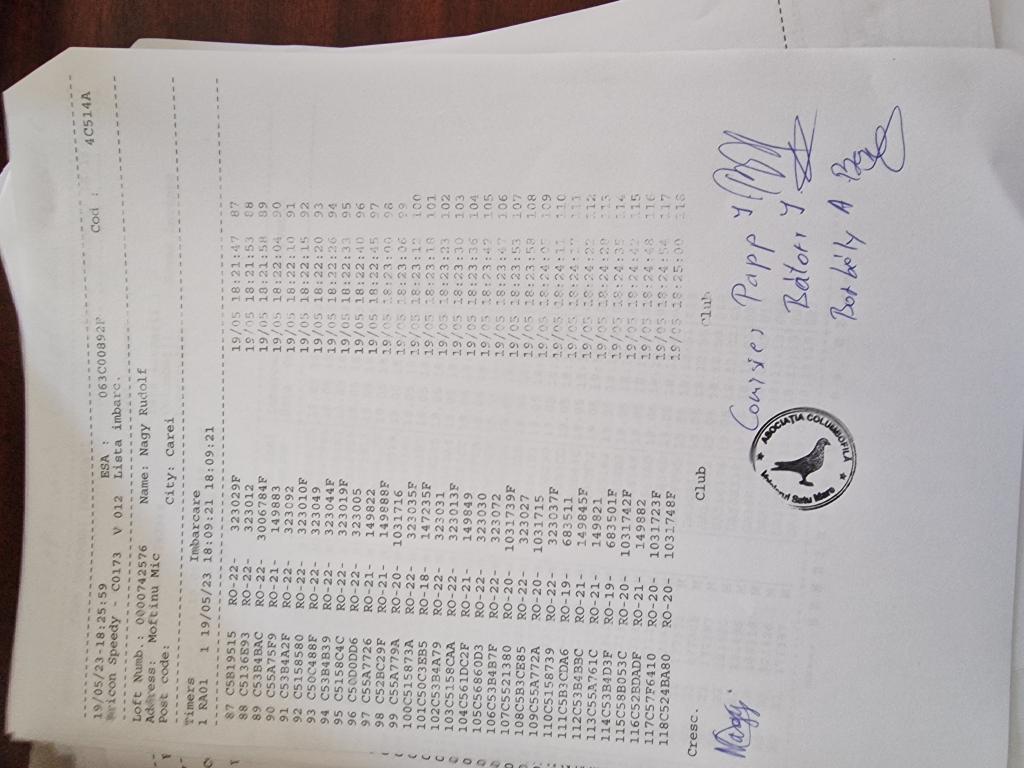 19/05/23-18:25:59 ESA : 063C00892F Cod : 4C514A
Bricon Speedy - C0173 V 012 Lista imbarc.
Loft Numb.: 0000742576 Name: Nagy Rudolf
Address: Moftinu Mic
Post code: City: Carei
Timers Imbarcare
1 RA01 1 19/05/23 18:09:21 18:09:21
87 C5B19515 RO-22- 323029F 19/05 18:21:47 87
88 C5136E93 RO-22- 323012 19/05 18:21:53 88
89 C53B4BAC RO-22- 3006784F 19/05 18:21:58 89
90 C55A75F9 RO-21- 149883 19/05 18:22:04 90
91 C53B4A2F RO-22- 323092 19/05 18:22:10 91
92 C5158580 RO-22- 323010F 19/05 18:22:15 92
93 C50C488F RO-22- 323049 19/05 18:22:20 93
94 C53B4B39 RO-22- 323044F 19/05 18:22:26 94
95 C5158C4C RO-22- 323019F 19/05 18:22:33 95
96 C50D0DD6 RO-22- 323005 19/05 18:22:40 96
97 C55A7726 RO-21- 149822 19/05 18:22:45 97
98 C52BC29F RO-21- 149888F 19/05 18:23:00 98
99 C55A779A RO-20- 1031716 19/05 18:23:06 99
100C515873A RO-22- 323035F 19/05 18:23:12 100
101C50C3EB5 RO-18- 147235F 19/05 18:23:18 101
102C53B4A79 RO-22- 323031 19/05 18:23:23 102
103C5158CAA RO-22- 323013F 19/05 18:23:30 103
104C561DC2F RO-21- 149849 19/05 18:23:36 104
105C56860D3 RO-22- 323030 19/05 18:23:42 105
106C53B4B7F RO-22- 323072 19/05 18:23:47 106
107C5521380 RO-20- 1031739F 19/05 18:23:53 107
108C5B3CE85 RO-22- 323027 19/05 18:23:58 108
109C55A772A RO-20- 1031715 19/05 109
110C5158739 RO-22- 323037F 19/05 18:24:11 110
111C5B3CDA6 RO-19- 683511 19/05 111
112C53B4BBC RO-21- 149845F 19/05 18:24:22 112
113C55A761C RO-21- 149821 19/05 18:24:28 113
114C53B4D3F RO-19- 683501F 19/05 18:24:35 114
115C58B053C RO-20- 1031742F 19/05 18:24:42 115
116C52BDADF RO-21- 149882 19/05 18:24:48 116
117C57F6410 RO-20- 1031723F 19/05 18:24:54 117
118C524BA80 RO-20- 1031748F 19/05 18:25:00 118
Cresc. Club Club
Nagy
Comisie, Papp Y
Bátori Y
Borbély A
ASOCIATIA COLUMBOFILA
Satu Mare